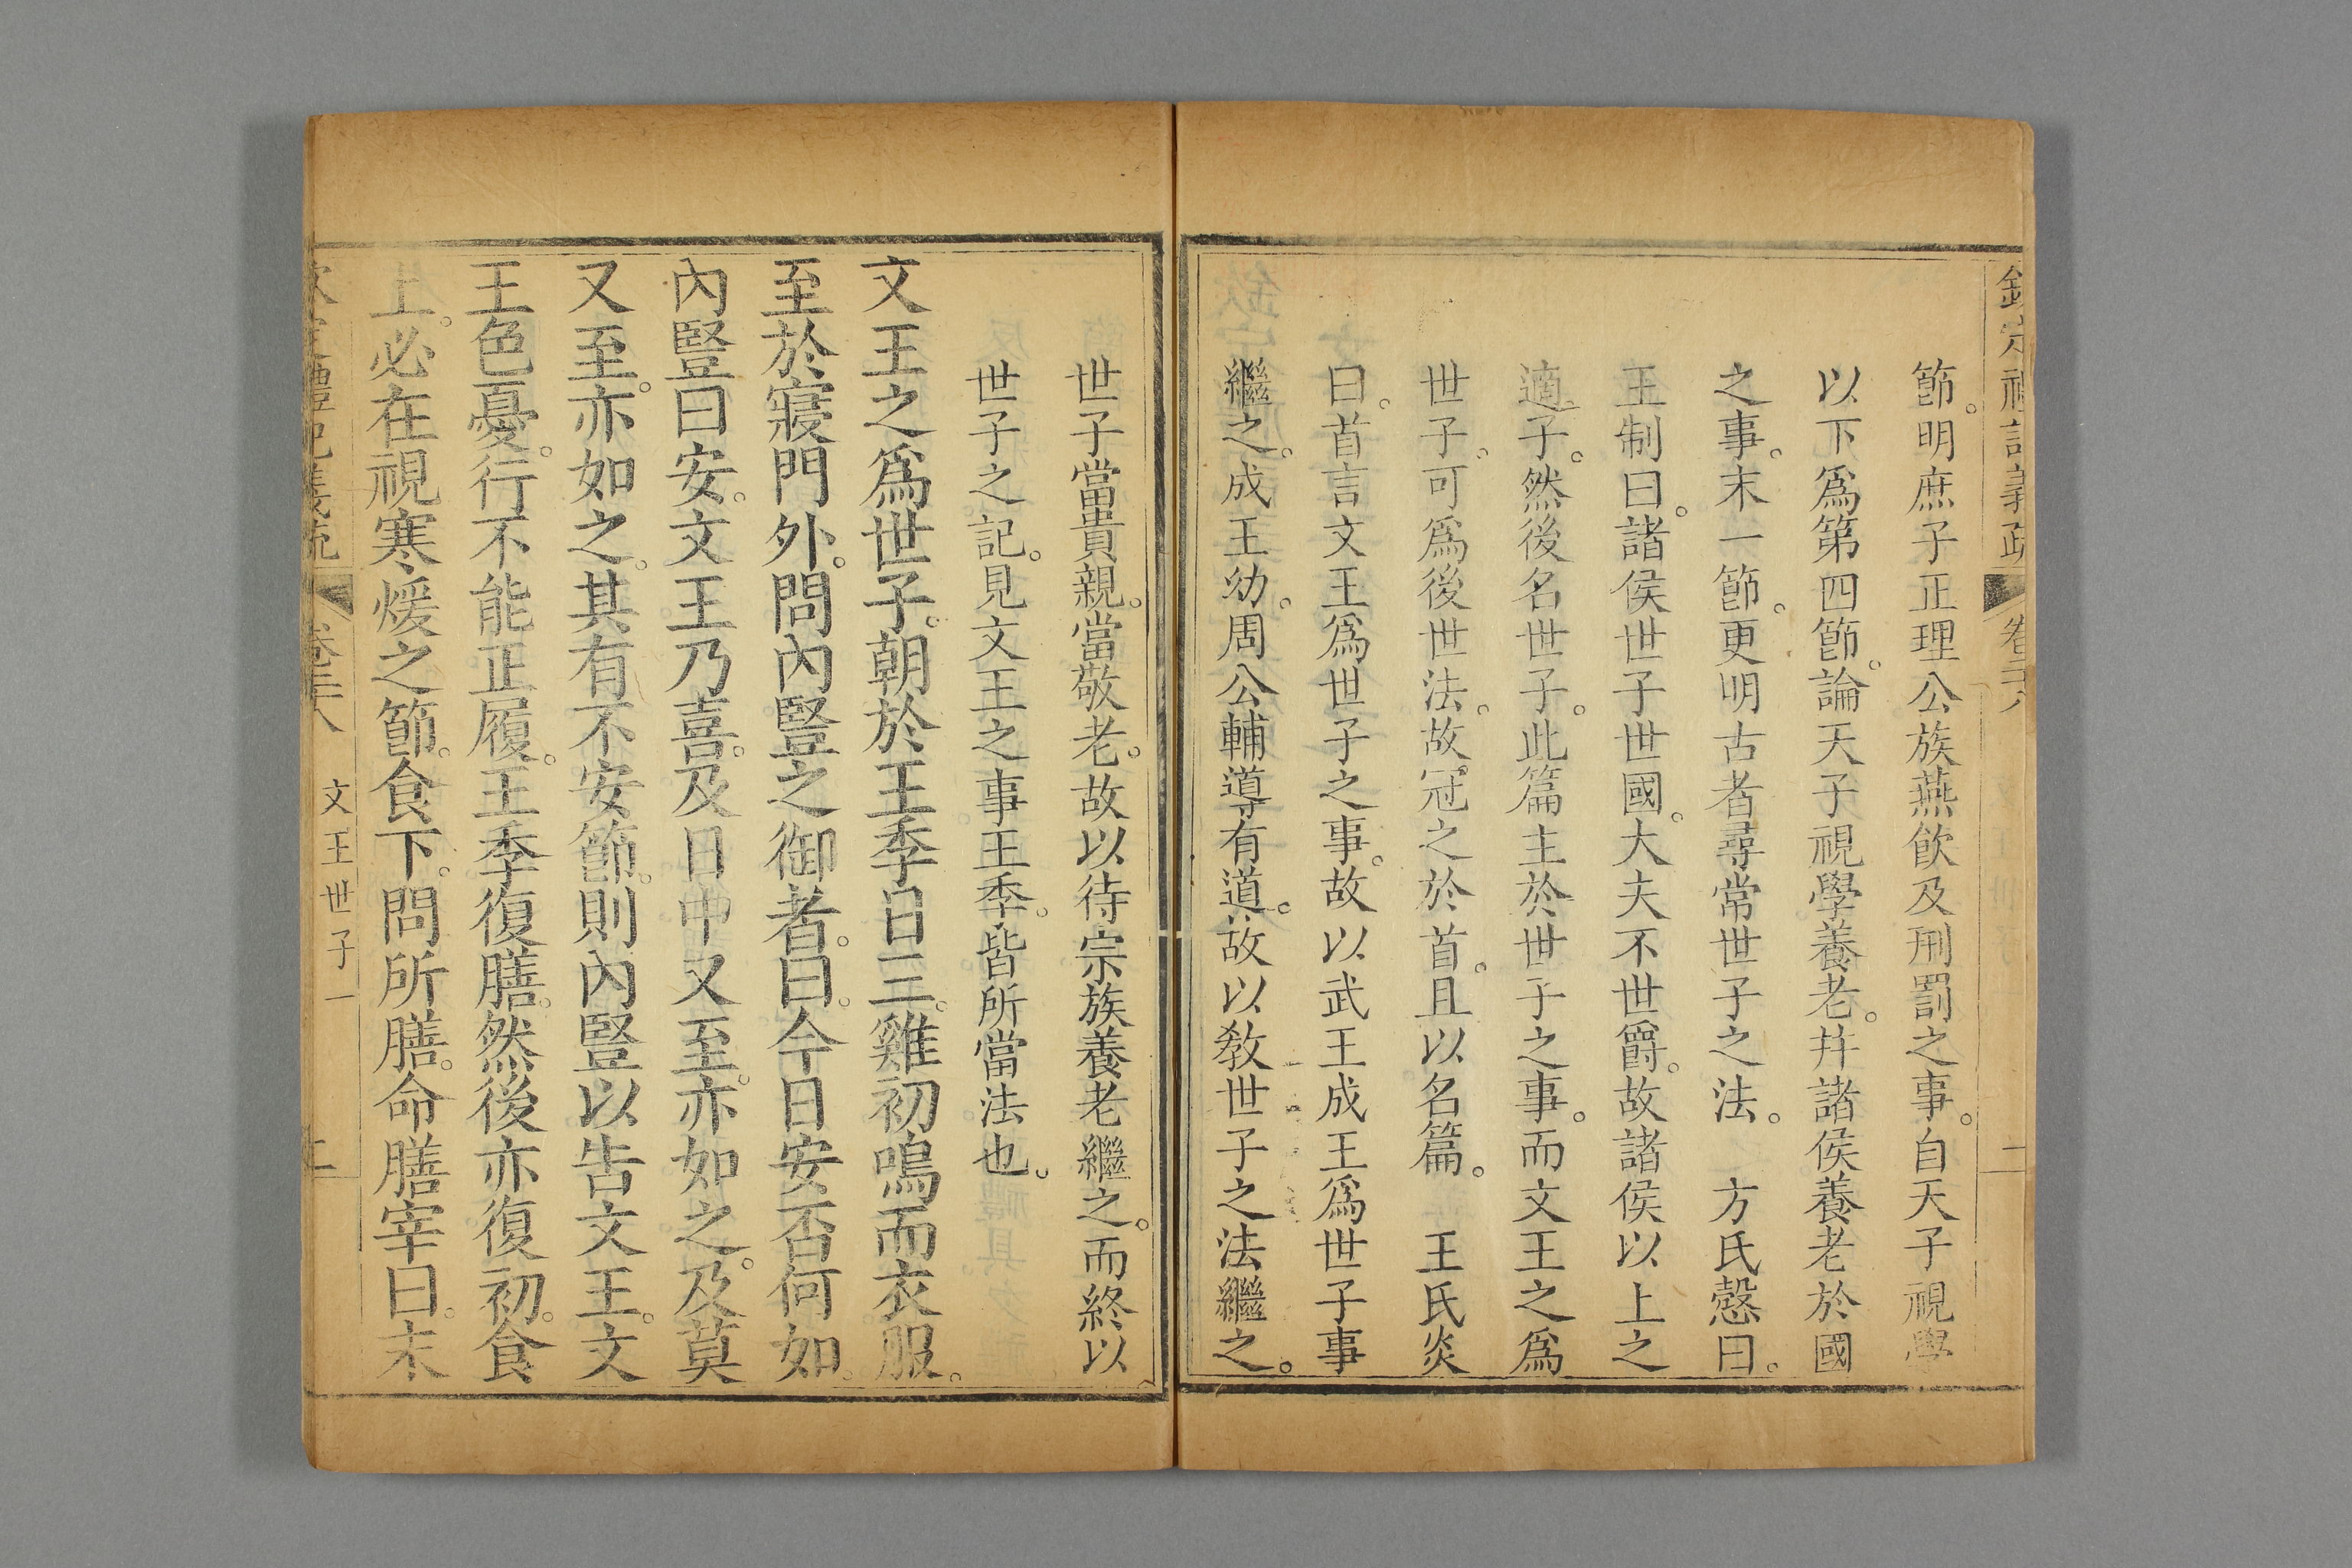 欽定禮記義疏 卷二十八 二
節。明庶子正理公族燕飲及刑罰之事。自天子視學
以下爲第四節。論天子視學養老。幷諸侯養老於國
之事。末一節。更明古者尋常世子之法。 方氏慤曰。
王制曰。諸侯世子世國。大夫不世爵。故諸侯以上之
適子。然後名世子。此篇主於世子之事。而文王之爲
世子。可爲後世法。故冠之於首。且以名篇。 王氏炎
曰。首言文王爲世子之事。故以武王成王爲世子事
繼之。成王幼。周公輔導有道。故以敎世子之法繼之。
世子當貴親。當敬老。故以待宗族養老繼之。而終以
世子之記。見文王之事王季。皆所當法也。
文王之爲世子。朝於王季日三。雞初鳴而衣服。
至於寢門外。問內豎之御者。曰。今日安否何如。
內豎曰安。文王乃喜。及日中又至。亦如之。及莫
又至。亦如之。其有不安節。則內豎以告文王。文
王色憂。行不能正履。王季復膳。然後亦復初。食
上。必在視寒煖之節。食下。問所膳。命膳宰曰。末
欽定禮記義疏 卷二十八 文王世子一